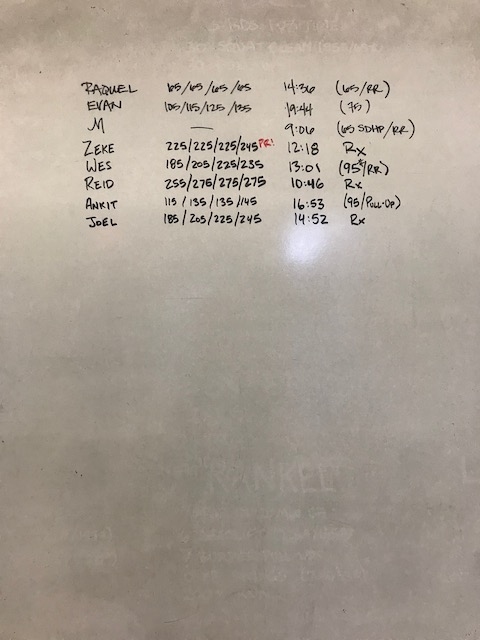 RAQUEL 65/65/65/65 14:36 (65/RR)
EVAN 105/115/125/135 19:44 (75)
M — 9:06 (65 SDHP/RR)
ZEKE 225/225/225/245 PR! 12:18 Rx
WES 185/205/225/235 13:01 (95#/RR)
REID 255/275/275/275 10:46 Rx
ANKIT 115/135/135/145 16:53 (95/PULL-UP)
JOEL 185/205/225/245 14:52 Rx
RANKEL